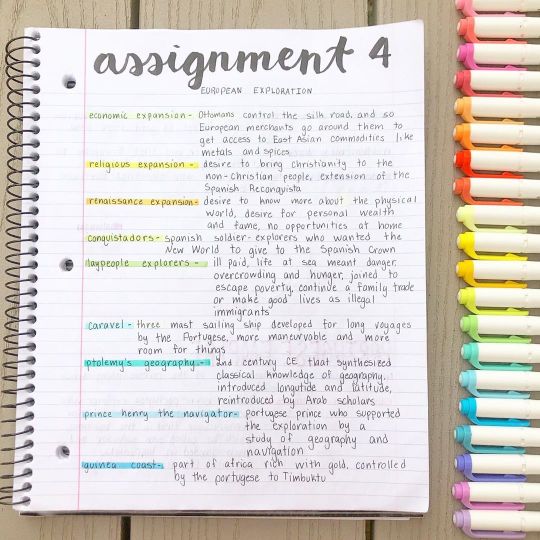 assignment 4
EUROPEAN EXPLORATION
economic expansion - Ottomans control the silk road, and so
European merchants go around them to
get access to East Asian commodities like
metals and spices
religious expansion - desire to bring christianity to the
non-Christian people, extension of the
Spanish Reconquista
renaissance expansion - desire to know more about the physical
world, desire for personal wealth
and fame, no opportunities at home
conquistadors - spanish soldier-explorers who wanted the
New World to give to the Spanish Crown
laypeople explorers - ill paid, life at sea meant danger,
overcrowding and hunger, joined to
escape poverty, continue a family trade
or make good lives as illegal
immigrants
caravel - three mast sailing ship developed for long voyages
by the Portugese, more maneuvable and more
room for things
ptolemy's geography - 2nd century CE that synthesized
classical knowledge of geography,
introduced longutide and latitude,
reintroduced by Arab scholars
prince henry the navigator - portugese prince who supported
the exploration by a
study of geography and
navigation
guinea coast - part of africa rich with gold, controlled
by the portugese to Timbuktu